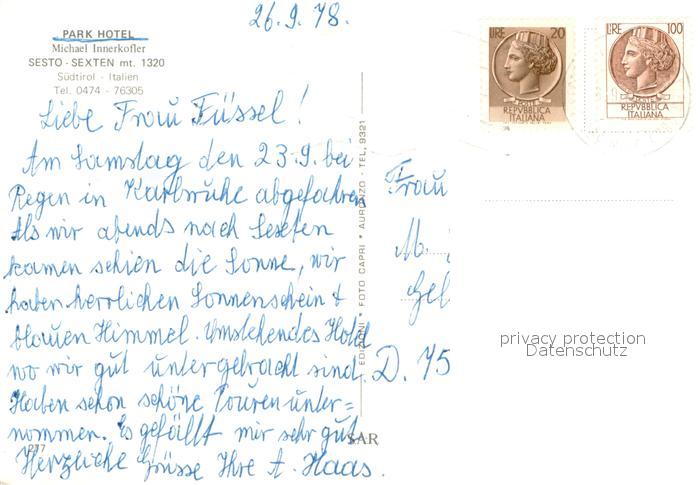 26.9.78.
PARK HOTEL
Michael Innerkofler
SESTO - SEXTEN mt. 1320
Südtirol - Italien
Tel. 0474 - 76305
LIRE 20
POSTE
REPVBBLICA
ITALIANA
LIRE 100
POSTE
REPVBBLICA
ITALIANA
Liebe Frau Füssel!
Am Samstag den 23.9. bei
Regen in Karlsruhe abgefahren
Als wir abends nach Sexten
kamen schien die Sonne, wir
haben herrlichen Sonnenschein &
blauen Himmel. Umstehendes Hotel
wo wir gut untergebracht sind.
Haben schon schöne Touren unter=
nommen. Es gefällt mir sehr gut
Herzliche Grüsse Ihre A. Haas.
277
EDIZIONI * FOTO CAPRI * AURONZO - TEL. 9321
SAR
Frau
M.
D. 75
privacy protection
Datenschutz